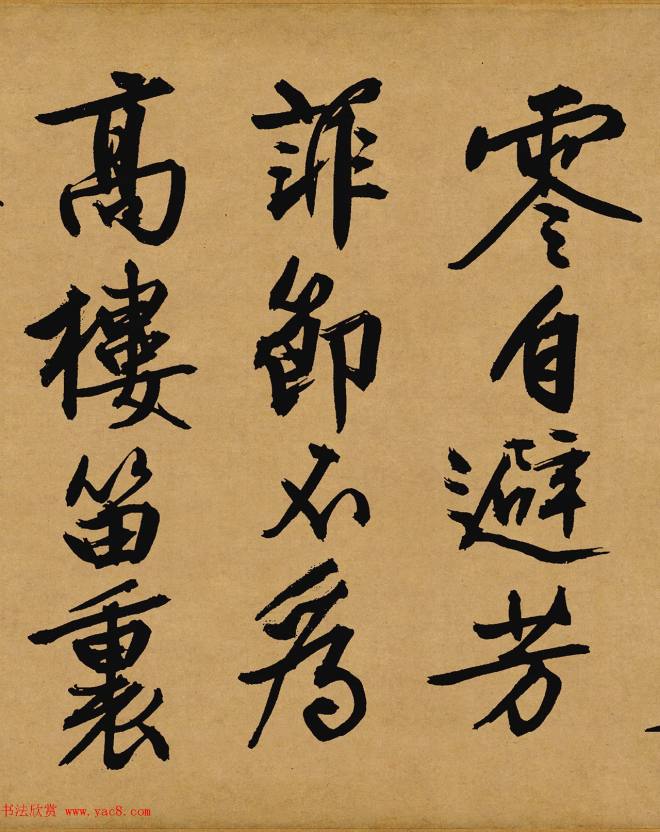 零自避芳
菲節不為
高樓笛裏
书法欣赏 www.yac8.com